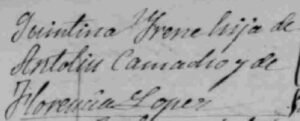 Quintina Yrene hija de
Antolin Camacho y de
Florencia Lopez